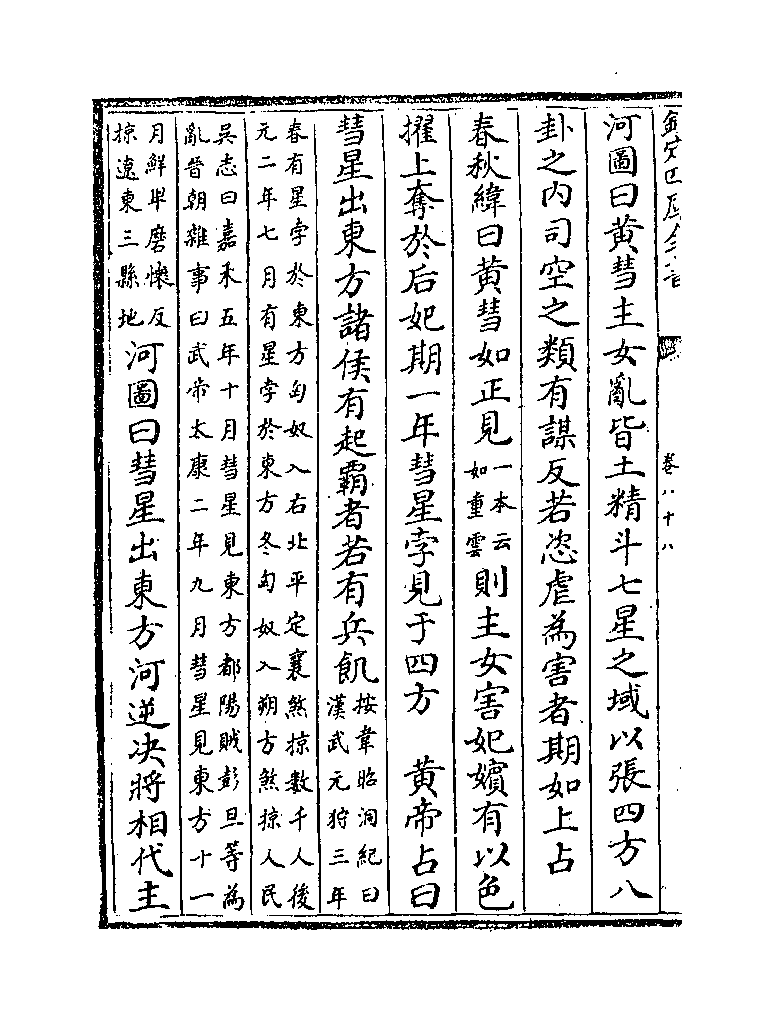 欽定四庫全書
卷八十八
河圖曰黃彗主女亂皆土精斗七星之域以張四方八
卦之内司空之類有謀反若恣虐為害者期如上占
春秋緯曰黃彗如正見一本云如重雲則主女害妃嬪有以色
擢上奪於后妃期一年彗星孛見于四方　黃帝占曰
彗星出東方諸侯有起霸者若有兵飢按韋昭洞紀曰漢武元狩三年
春有星孛於東方匈奴入右北平定襄煞掠數千人後
元二年七月有星孛於東方冬匈奴入朔方煞掠人民
吳志曰嘉禾五年十月彗星見東方都陽賊彭旦等為
亂晉朝雜事曰武帝太康二年九月彗星見東方十一
月鮮卑磨懷反掠遼東三縣地河圖曰彗星出東方河逆决將相代主